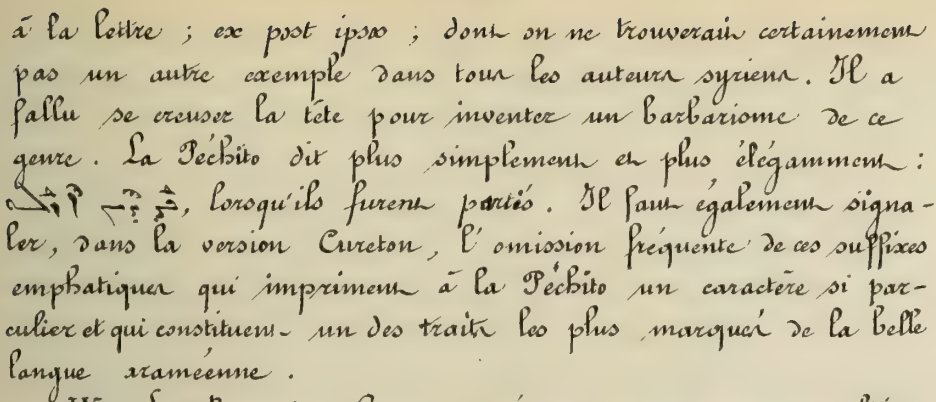 à la lettre ; ex post ipsos ; dont on ne trouverait certainement
pas un autre exemple dans tous les auteurs syriens. Il a
fallu se creuser la tête pour inventer un barbarisme de ce
genre. La Péchito dit plus simplement et plus élégamment :
lorsqu'ils furent partis. Il faut également signa-
ler, dans la version Cureton, l'omission fréquente de ces suffixes
emphatiques qui impriment à la Péchito un caractère si par-
culier et qui constituent un des traits les plus marqués de la belle
langue araméenne.